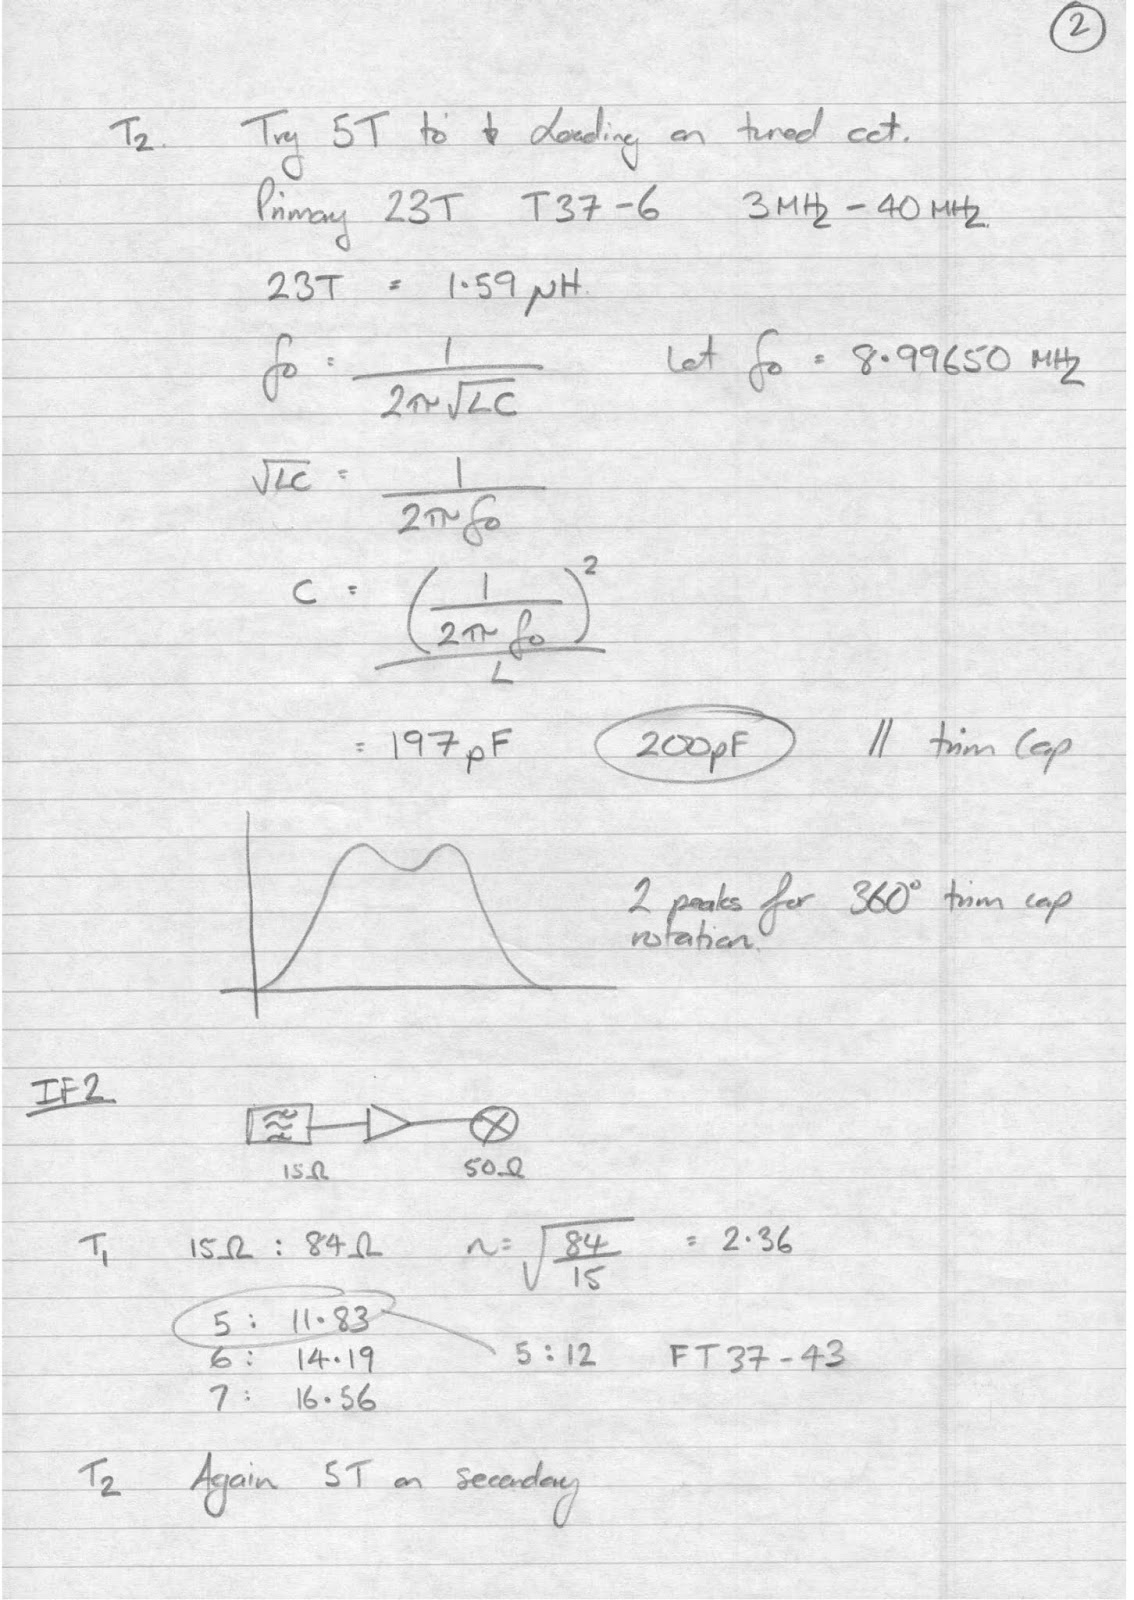 2
T2. Try 5T to ↓ Loading on tuned cct.
Primary 23T T37-6 3MHz - 40MHz.
23T = 1.59 μH.
fo = 1 / 2π√LC Let fo = 8.99650 MHz
√LC = 1 / 2π fo
C = (1 / 2π fo)² / L
= 197pF 200pF // trim Cap
2 peaks for 360° trim cap
rotation.
IF2
15Ω 50Ω
T1 15Ω : 84Ω n = √84/15 = 2.36
5 : 11.83
6 : 14.19 5:12 FT37-43
7 : 16.56
T2 Again 5T on secondary